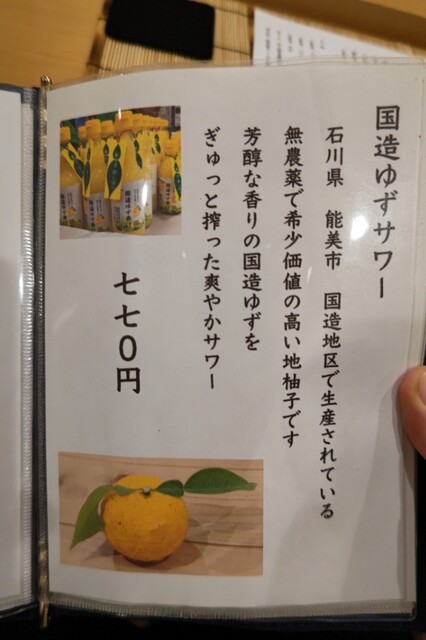 国造ゆずサワー
石川県　能美市　国造地区で生産されている
無農薬で希少価値の高い地柚子です
芳醇な香りの国造ゆずを
ぎゅっと搾った爽やかサワー
七七〇円